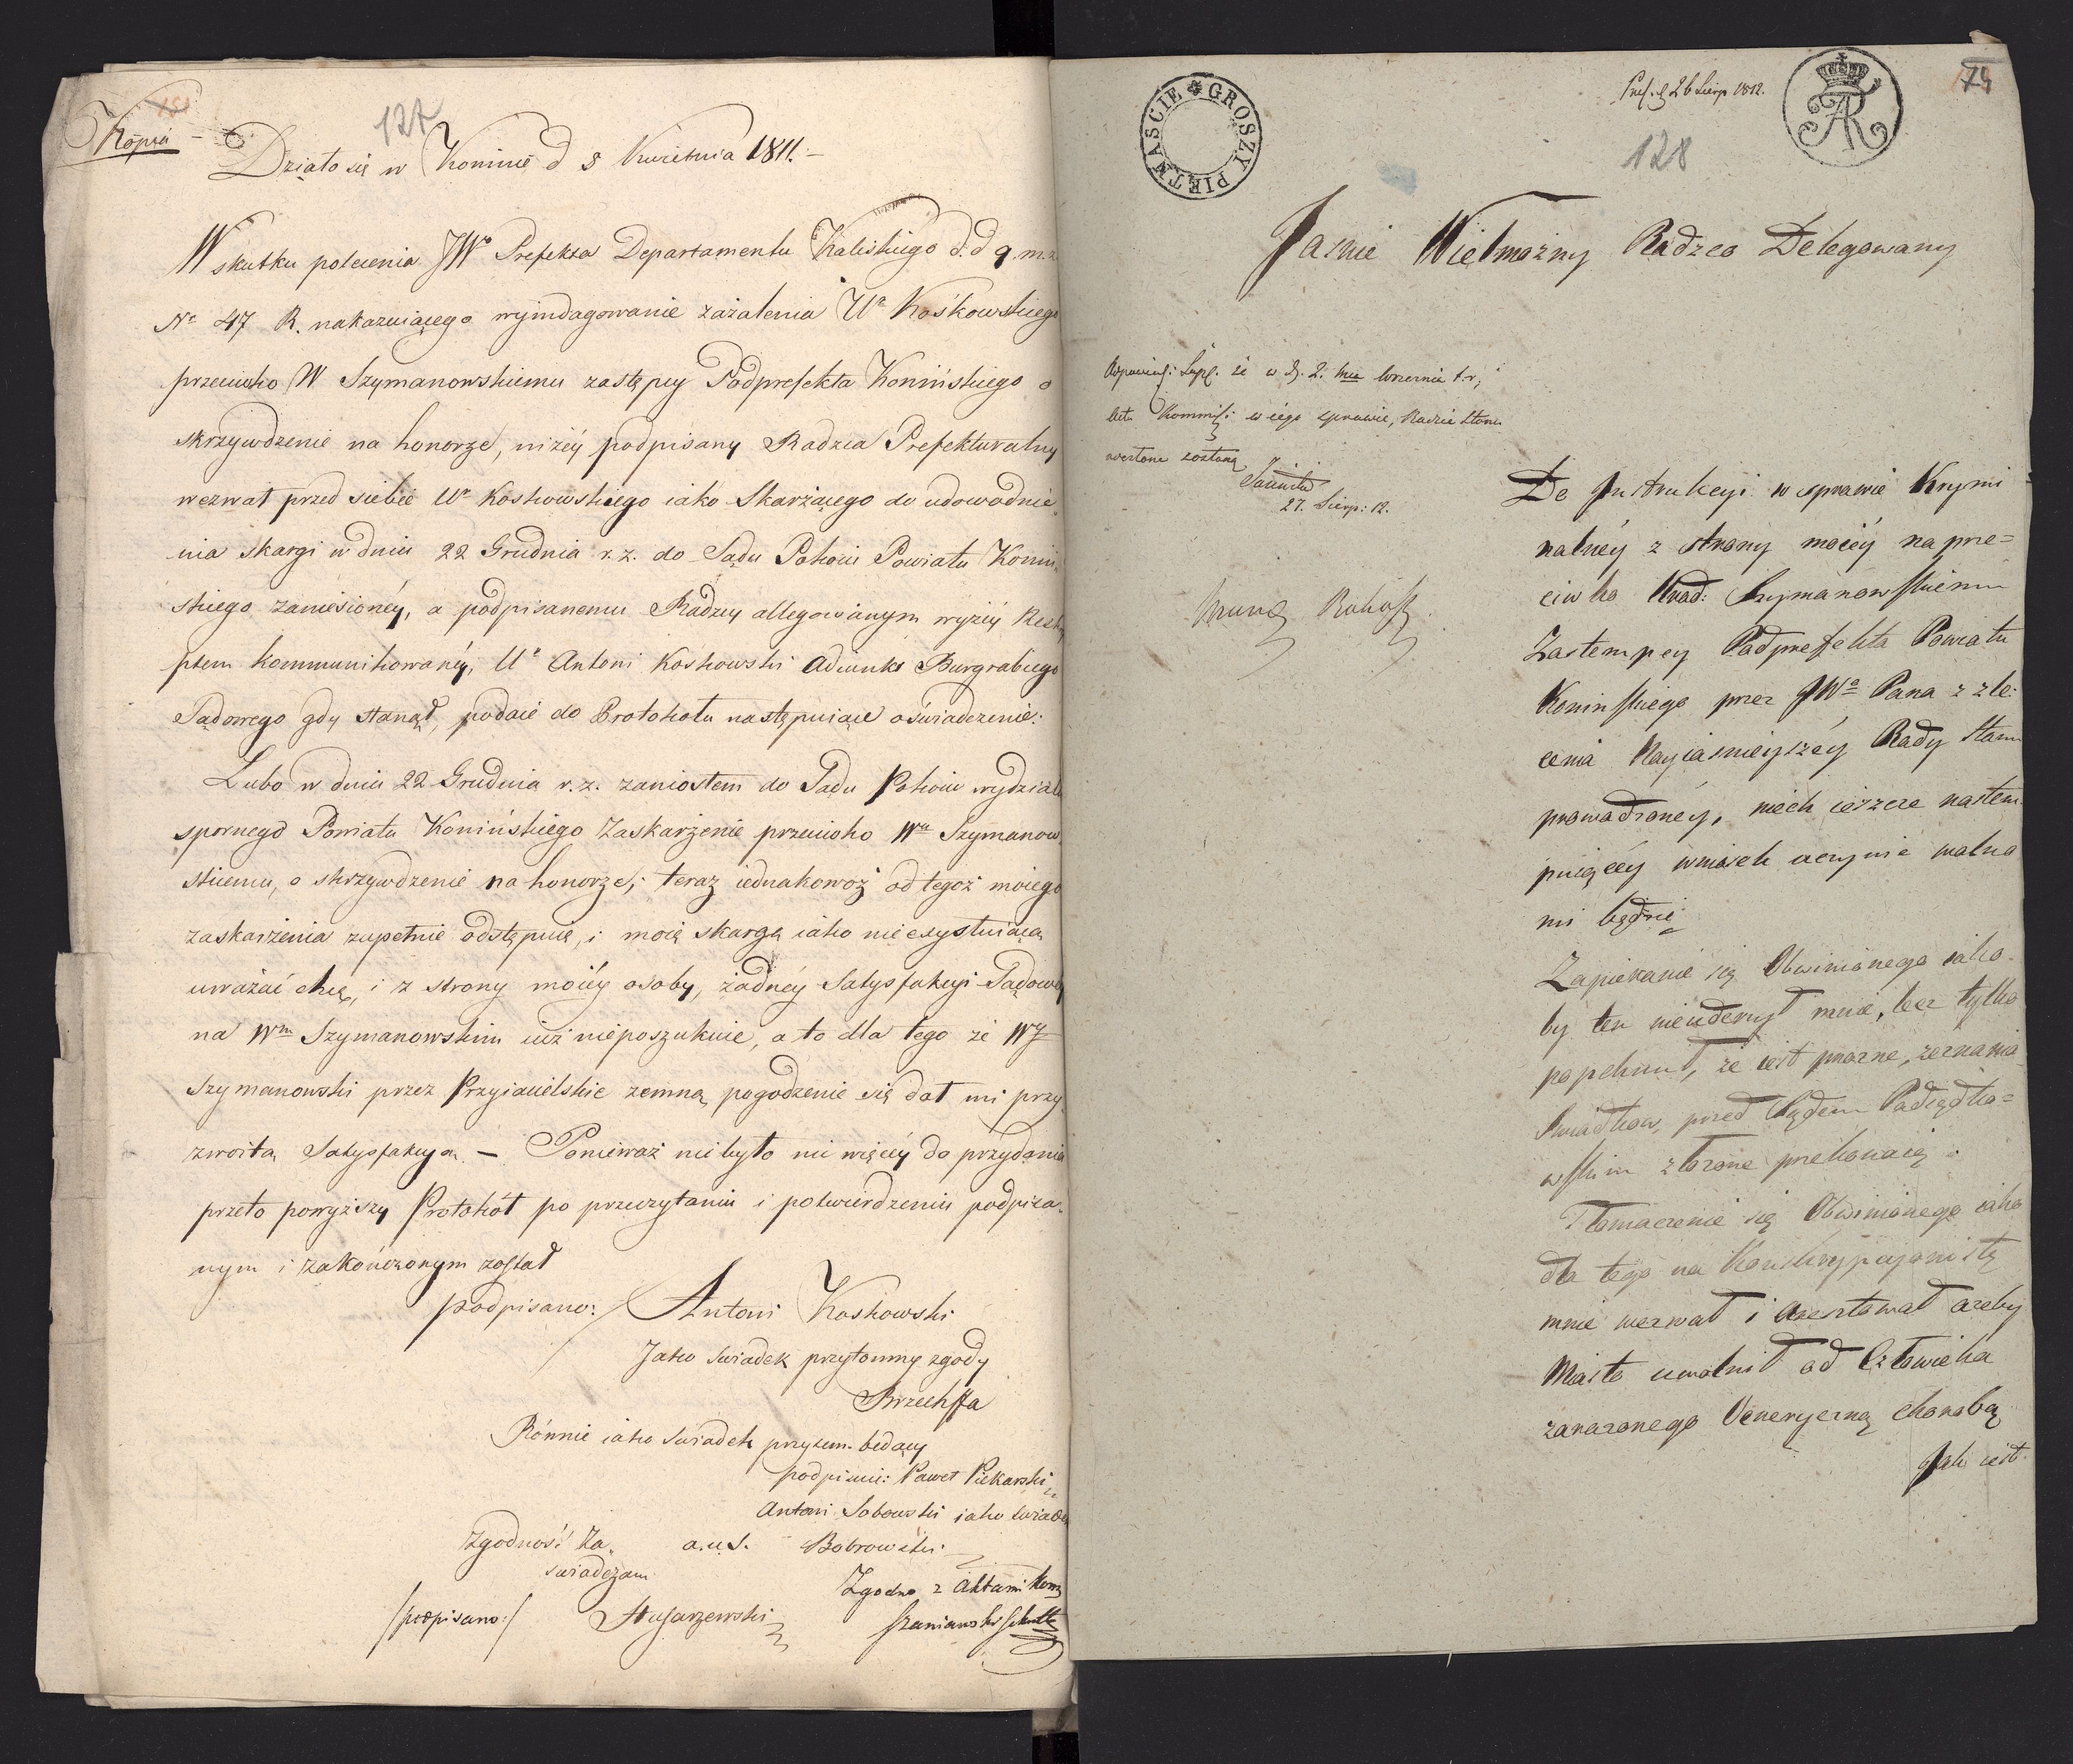 Kopia
127
Działo się w Koninie d 8 Kwietnia 1811.
W skutku polecenia JWo Prefekta Departamentu Kaliskiego d.d 9. m.z
No 47 R. nakazuiącego wyindagowanie zażalenia Uo Koskowskiego
przeciwko W Szymanowskiemu zastępcy Podprefekta Konińskiego o
skrzywdzenie na honorze, niżéy podpisany Radzca Prefekturalny
wezwał przed siebie Uo Koskowskiego iako Skarżącego do udowodnie
nia skargi w dniu 22 Grudnia r.z. do Sądu Pokoiu Powiatu Koniń
skiego zaniesionéy, a podpisanemu Radzcy allegowanym wyżéy Reskry
ptem kommunikowanéy, Uo Antoni Koskowski Adiunkt Burgrabiego
Sądowego gdy stanął, podaie do Protokołu następuiące oświadczenie:
Lubo w dniu 22 Grudnia r.z. zaniosłem do Sądu Pokoiu wydziału
spornego Powiatu Konińskiego Zaskarżenie przeciwko Wu Szymanow
skiemu, o skrzywdzenie na honorze; teraz iednakowoż od tegoż moiego
zaskarżenia zupełnie odstępuię, i moią skargę iako nieexystuiącą
uważać chcę, i z strony moiéy osoby, żadnéy Satysfakcyi Sądowéy
na Wm Szymanowskim iuż nieposzukuie, a to dla tego że Wy
Szymanowski przez Przyiacielskie zemną pogodzenie się dał mi przy
zwoitą Satysfakcyą. — Ponieważ nie było nic więcéy do przydania
przeto powyższy Protokół po przeczytaniu i potwierdzeniu podpisa
nym i zakończonym został
podpisano: / Antoni Koskowski
Jako swiadek przytomny zgody
Brzechffa
Rownie iako swiadek przytem będący
podpisuie: Paweł Piekarski
Antoni Sobowski iako swiadek
Zgodność Za. a.u.s. Bobrowski
swiadczam
Zgodno z Aktami Kom
/podpisano:/ Stuszarzewski
Szaniawski Sekret
GROSZY PIĘTNAŚCIE
Pres. d 26 Sierp 1812.
128
74
Jaśnie Wielmożny Radzco Delegowany
Odpowiedź: Supl. że w d. 2. Września t.r,
Akta Kommisi w iego sprawie, Radzie Stanu
27. Sierp: 12.
Do Instrukcyi w sprawie Krymi
nalnéy z strony moiéy na prze=
ciwko Urod: Szymanowskiemu
Zastempcy Podprefekta Powiatu
Konińskiego przez JWo Pana z zle-
cenia Nayiaśnieyszéy Rady Stanu
prowadzonéy, niech ieszcze nastem
puiącéy wniosek uczynić wolno
mi będzie
Zapieranie się Obwinionego iako-
by ten nieuderzył mnie, lecz tylko
popchnął, że iest prozne, zeznania
Swiadkow, przed Sądem Podsędko=
wskim złożone przekonaią.
Tłomaczenie się Obwinionego iako
dla tego na Konskrypcyonistę
mnie wezwał i aresztował azeby
Miasto uwolnił od Człowieka
zarazonego Veneryczną chorobą
Jak iest